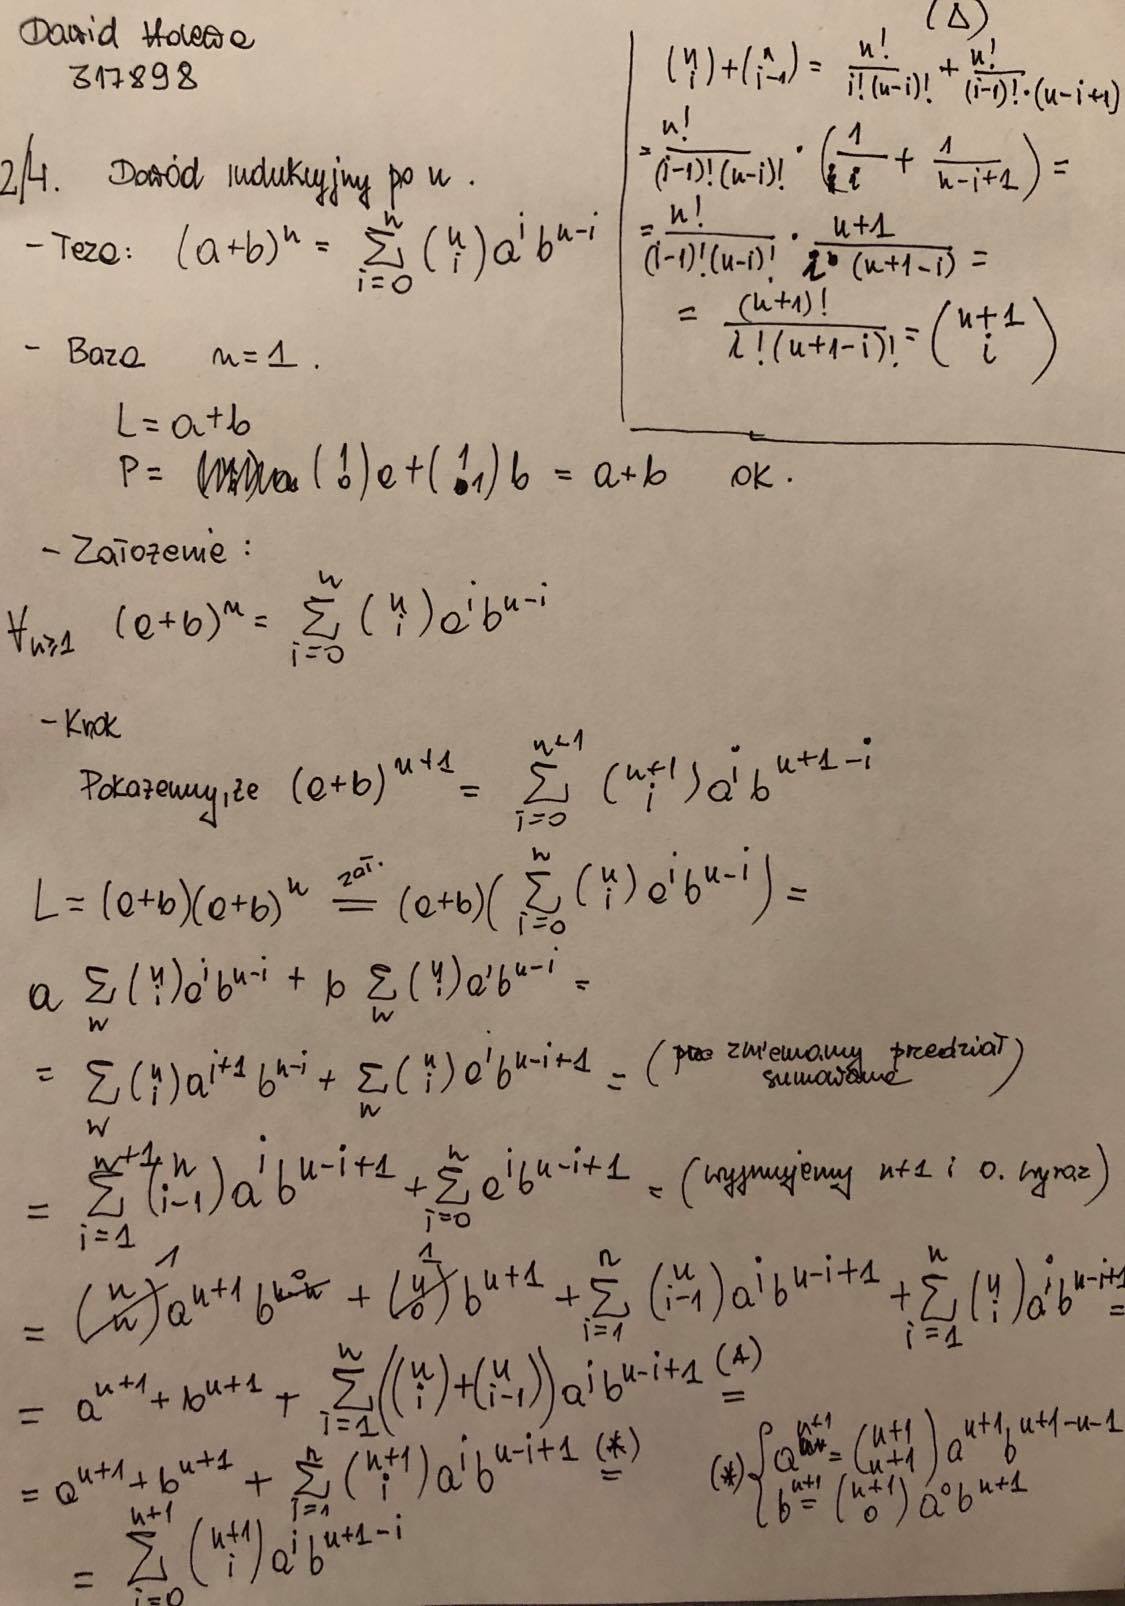 Dawid Holewa
317898
2/4. Dowód indukcyjny po n.
- Teza: (a+b)^n = ∑_{i=0}^{n} (n i) a^i b^{n-i}
- Baza n=1.
L = a+b
P = (1 0)a + (1 1)b = a+b OK.
- Założenie:
∀_{n≥1} (a+b)^n = ∑_{i=0}^{n} (n i) a^i b^{n-i}
- Krok
Pokażemy, że (a+b)^{n+1} = ∑_{i=0}^{n+1} (n+1 i) a^i b^{n+1-i}
L = (a+b)(a+b)^n =^{zał.} (a+b)(∑_{i=0}^{n} (n i) a^i b^{n-i}) =
a ∑_n (n i) a^i b^{n-i} + b ∑_n (n i) a^i b^{n-i} =
= ∑_n (n i) a^{i+1} b^{n-i} + ∑_n (n i) a^i b^{n-i+1} = (zmieniamy przedział sumowania)
= ∑_{i=1}^{n+1} (n i-1) a^i b^{n-i+1} + ∑_{i=0}^{n} a^i b^{n-i+1} = (wyjmujemy n+1 i 0. wyraz)
= (n n)^1 a^{n+1} b^0 + (n 0)^1 b^{n+1} + ∑_{i=1}^{n} (n i-1) a^i b^{n-i+1} + ∑_{i=1}^{n} (n i) a^i b^{n-i+1} =
= a^{n+1} + b^{n+1} + ∑_{i=1}^{n} ((n i) + (n i-1)) a^i b^{n-i+1} =^{(Δ)}
= a^{n+1} + b^{n+1} + ∑_{i=1}^{n} (n+1 i) a^i b^{n-i+1} =^{(*)}
= ∑_{i=0}^{n+1} (n+1 i) a^i b^{n+1-i}
(*) { a^{n+1} = (n+1 n+1) a^{n+1} b^{n+1-n-1}
b^{n+1} = (n+1 0) a^0 b^{n+1}
(Δ)
(n i) + (n i-1) = n!/(i!(n-i)!) + n!/((i-1)!·(n-i+1)
= n!/((i-1)!(n-i)!) · (1/i + 1/(n-i+1)) =
= n!/((i-1)!(n-i)!) · (n+1)/(i (n+1-i)) =
= (n+1)!/(i!(n+1-i)!) = (n+1 i)